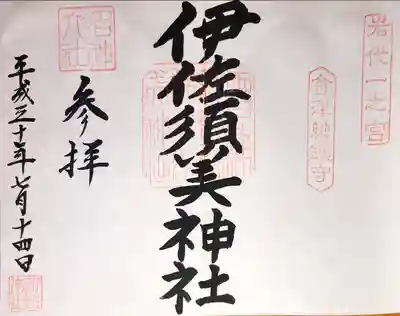 岩代一之宮
会津総鎮守
伊佐須美神社
名神大社
参拝
平成三十年七月十四日